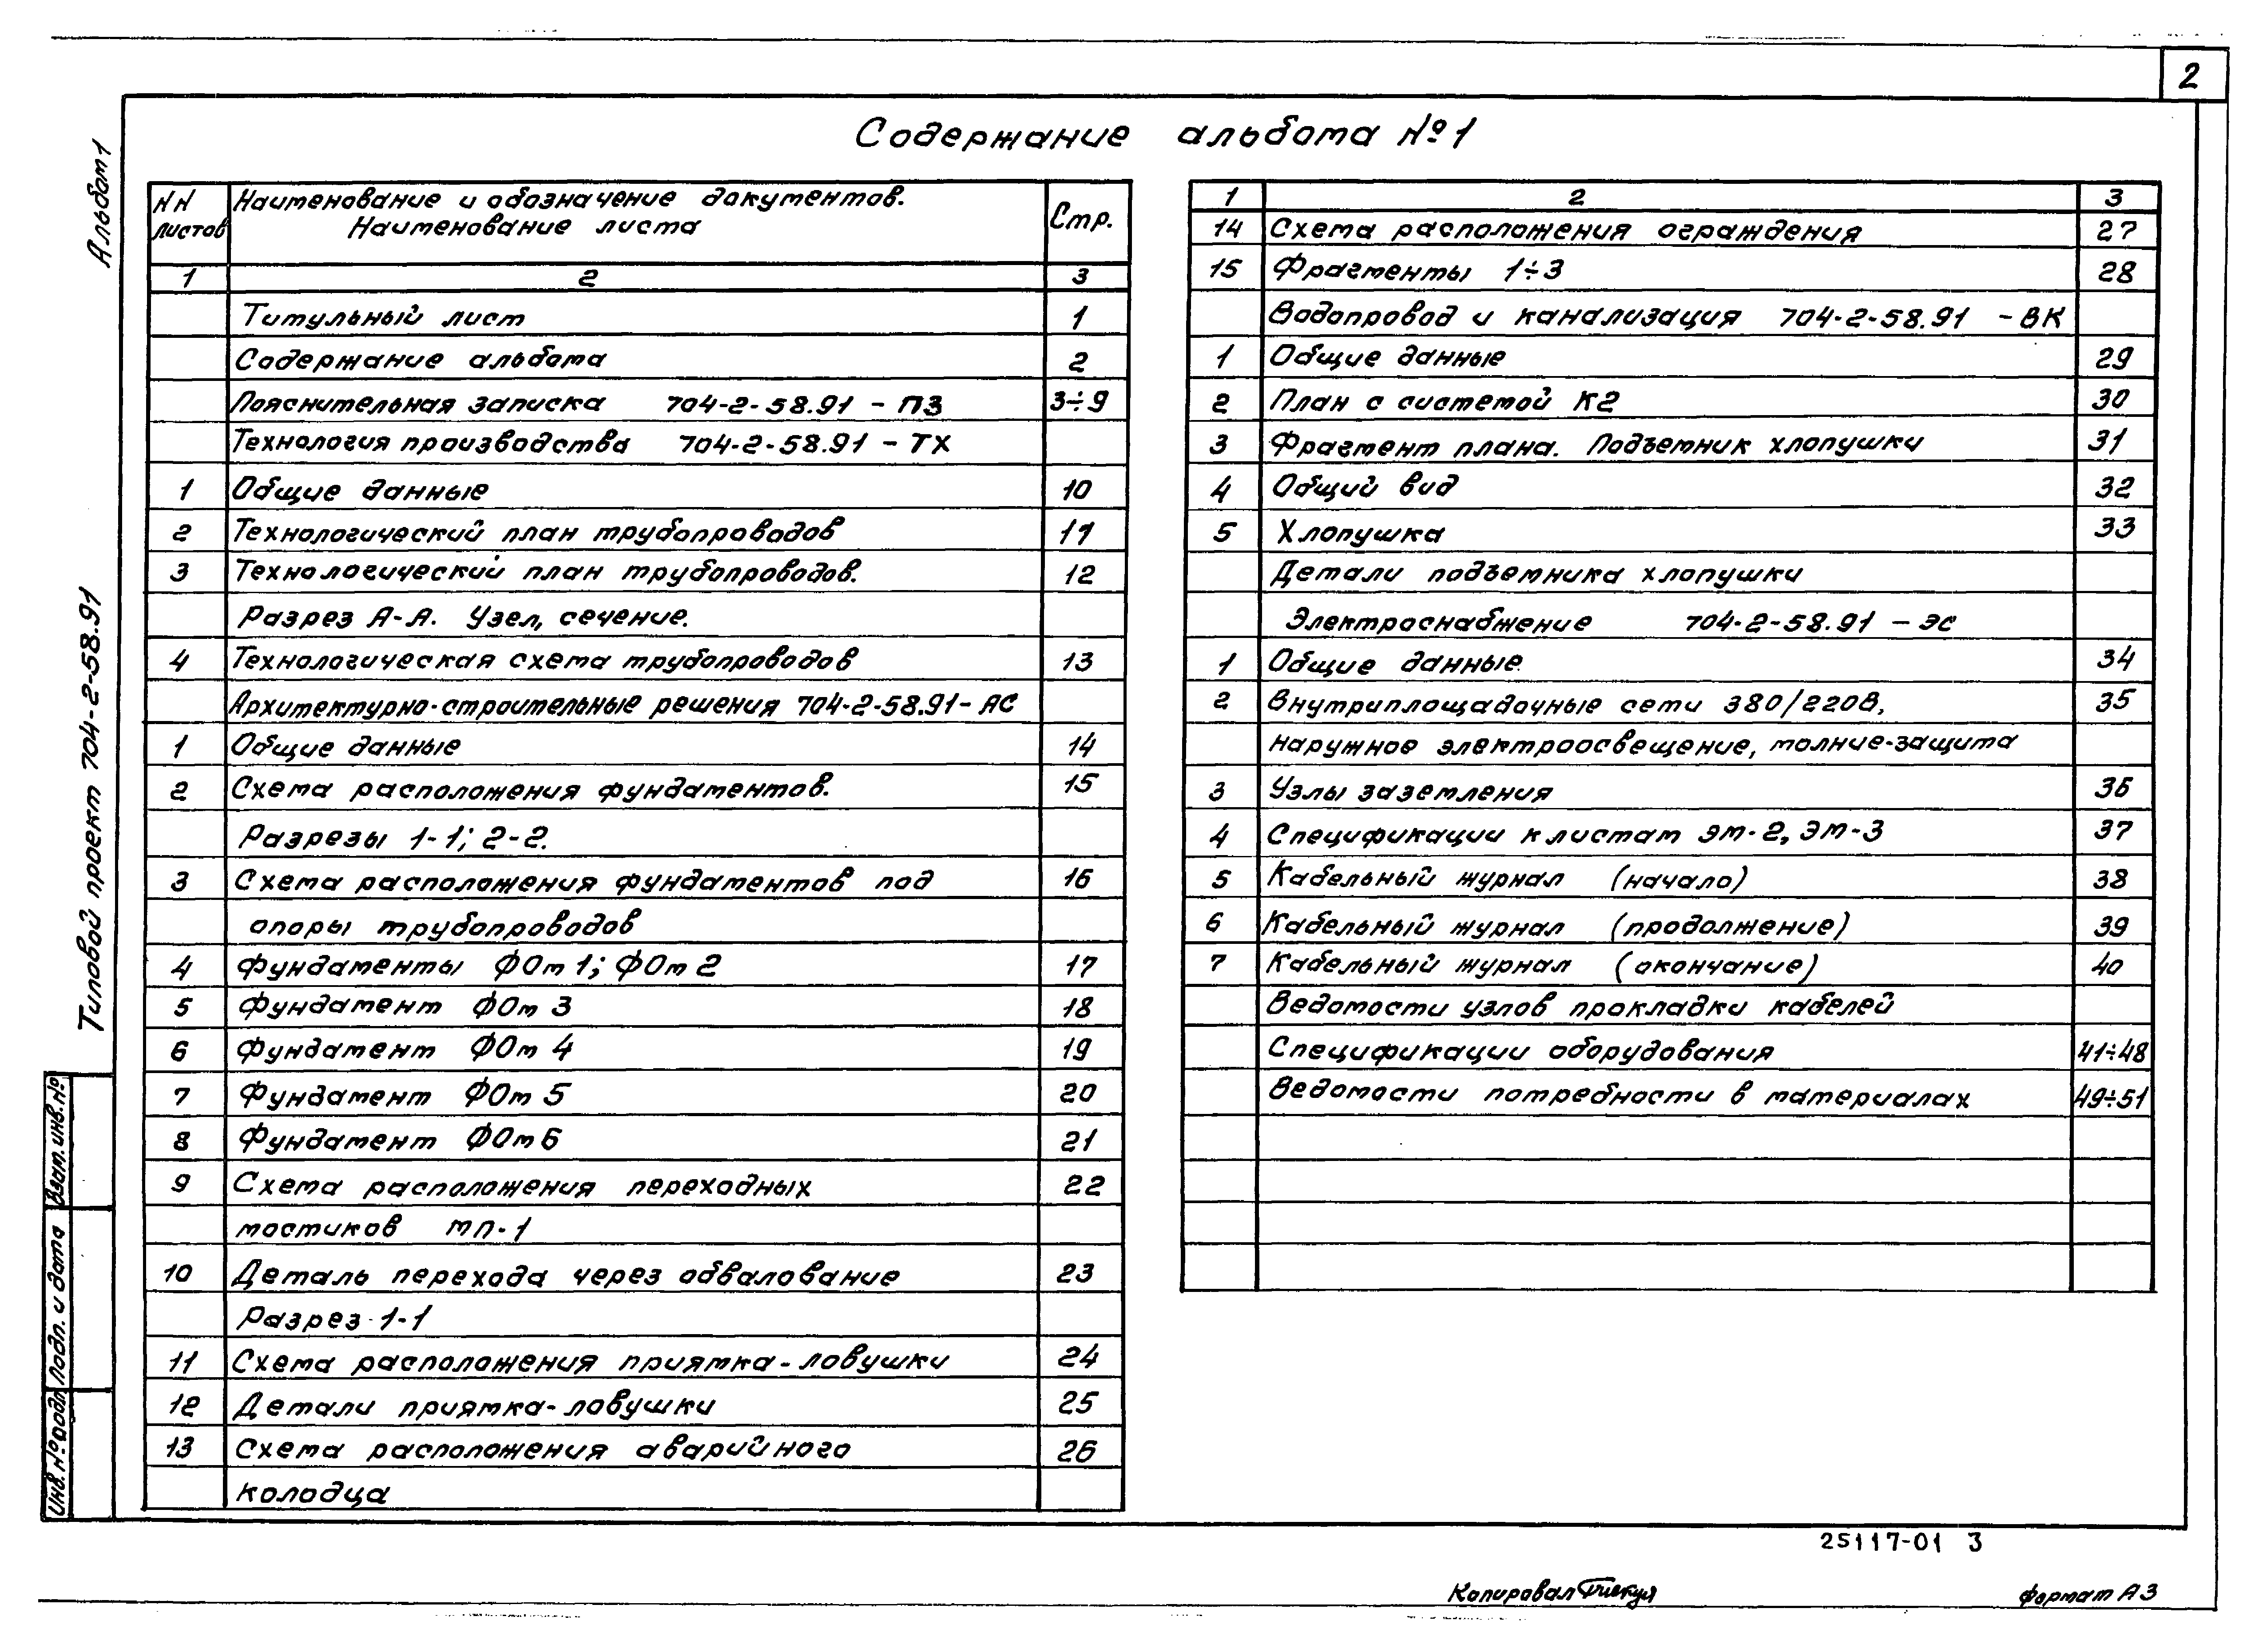 2
Содержание альбома №1
Альбом 1
Типовой проект 704-2-58.91
Взам. инв. №
Подп. и дата
Инв. № подл.
NN листов | Наименование и обозначение документов. Наименование листа | Стр.
1 | 2 | 3
Титульный лист | 1
Содержание альбома | 2
Пояснительная записка 704-2-58.91 - ПЗ | 3÷9
Технология производства 704-2-58.91 - ТХ
1 | Общие данные | 10
2 | Технологический план трубопроводов | 11
3 | Технологический план трубопроводов. | 12
Разрез А-А. Узел, сечение.
4 | Технологическая схема трубопроводов | 13
Архитектурно-строительные решения 704-2-58.91- АС
1 | Общие данные | 14
2 | Схема расположения фундаментов. | 15
Разрезы 1-1; 2-2.
3 | Схема расположения фундаментов под | 16
опоры трубопроводов
4 | Фундаменты ФОм 1; ФОм 2 | 17
5 | Фундамент ФОм 3 | 18
6 | Фундамент ФОм 4 | 19
7 | Фундамент ФОм 5 | 20
8 | Фундамент ФОм 6 | 21
9 | Схема расположения переходных | 22
мостиков МП-1
10 | Деталь перехода через обвалование | 23
Разрез 1-1
11 | Схема расположения приямка-ловушки | 24
12 | Детали приямка-ловушки | 25
13 | Схема расположения аварийного | 26
колодца
1 | 2 | 3
14 | Схема расположения ограждения | 27
15 | Фрагменты 1÷3 | 28
Водопровод и канализация 704-2-58.91 - ВК
1 | Общие данные | 29
2 | План с системой К2 | 30
3 | Фрагмент плана. Подъемник хлопушки | 31
4 | Общий вид | 32
5 | Хлопушка | 33
Детали подъемника хлопушки
Электроснабжение 704-2-58.91 - ЭС
1 | Общие данные | 34
2 | Внутриплощадочные сети 380/220В, | 35
наружное электроосвещение, молние-защита
3 | Узлы заземления | 36
4 | Спецификации к листам ЭМ-2, ЭМ-3 | 37
5 | Кабельный журнал (начало) | 38
6 | Кабельный журнал (продолжение) | 39
7 | Кабельный журнал (окончание) | 40
Ведомости узлов прокладки кабелей
Спецификации оборудования | 41÷48
Ведомости потребности в материалах | 49÷51
25117-01 3
Копировал
Формат А3